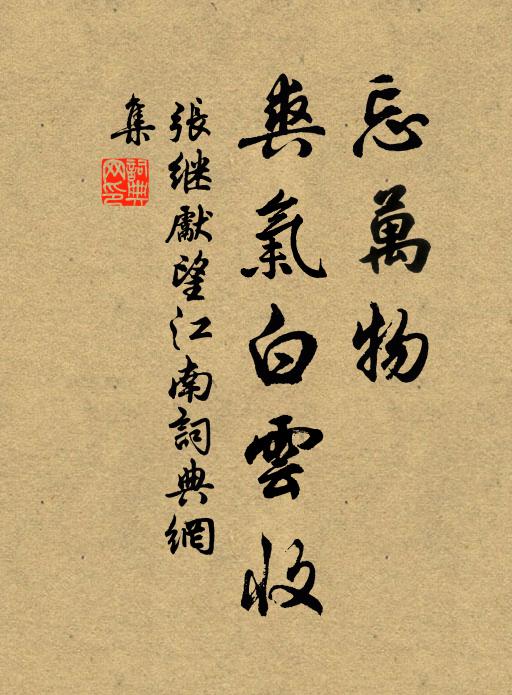 忘萬物
爽氣白雲收
張继獻望江南詞典網
集
詞典网印